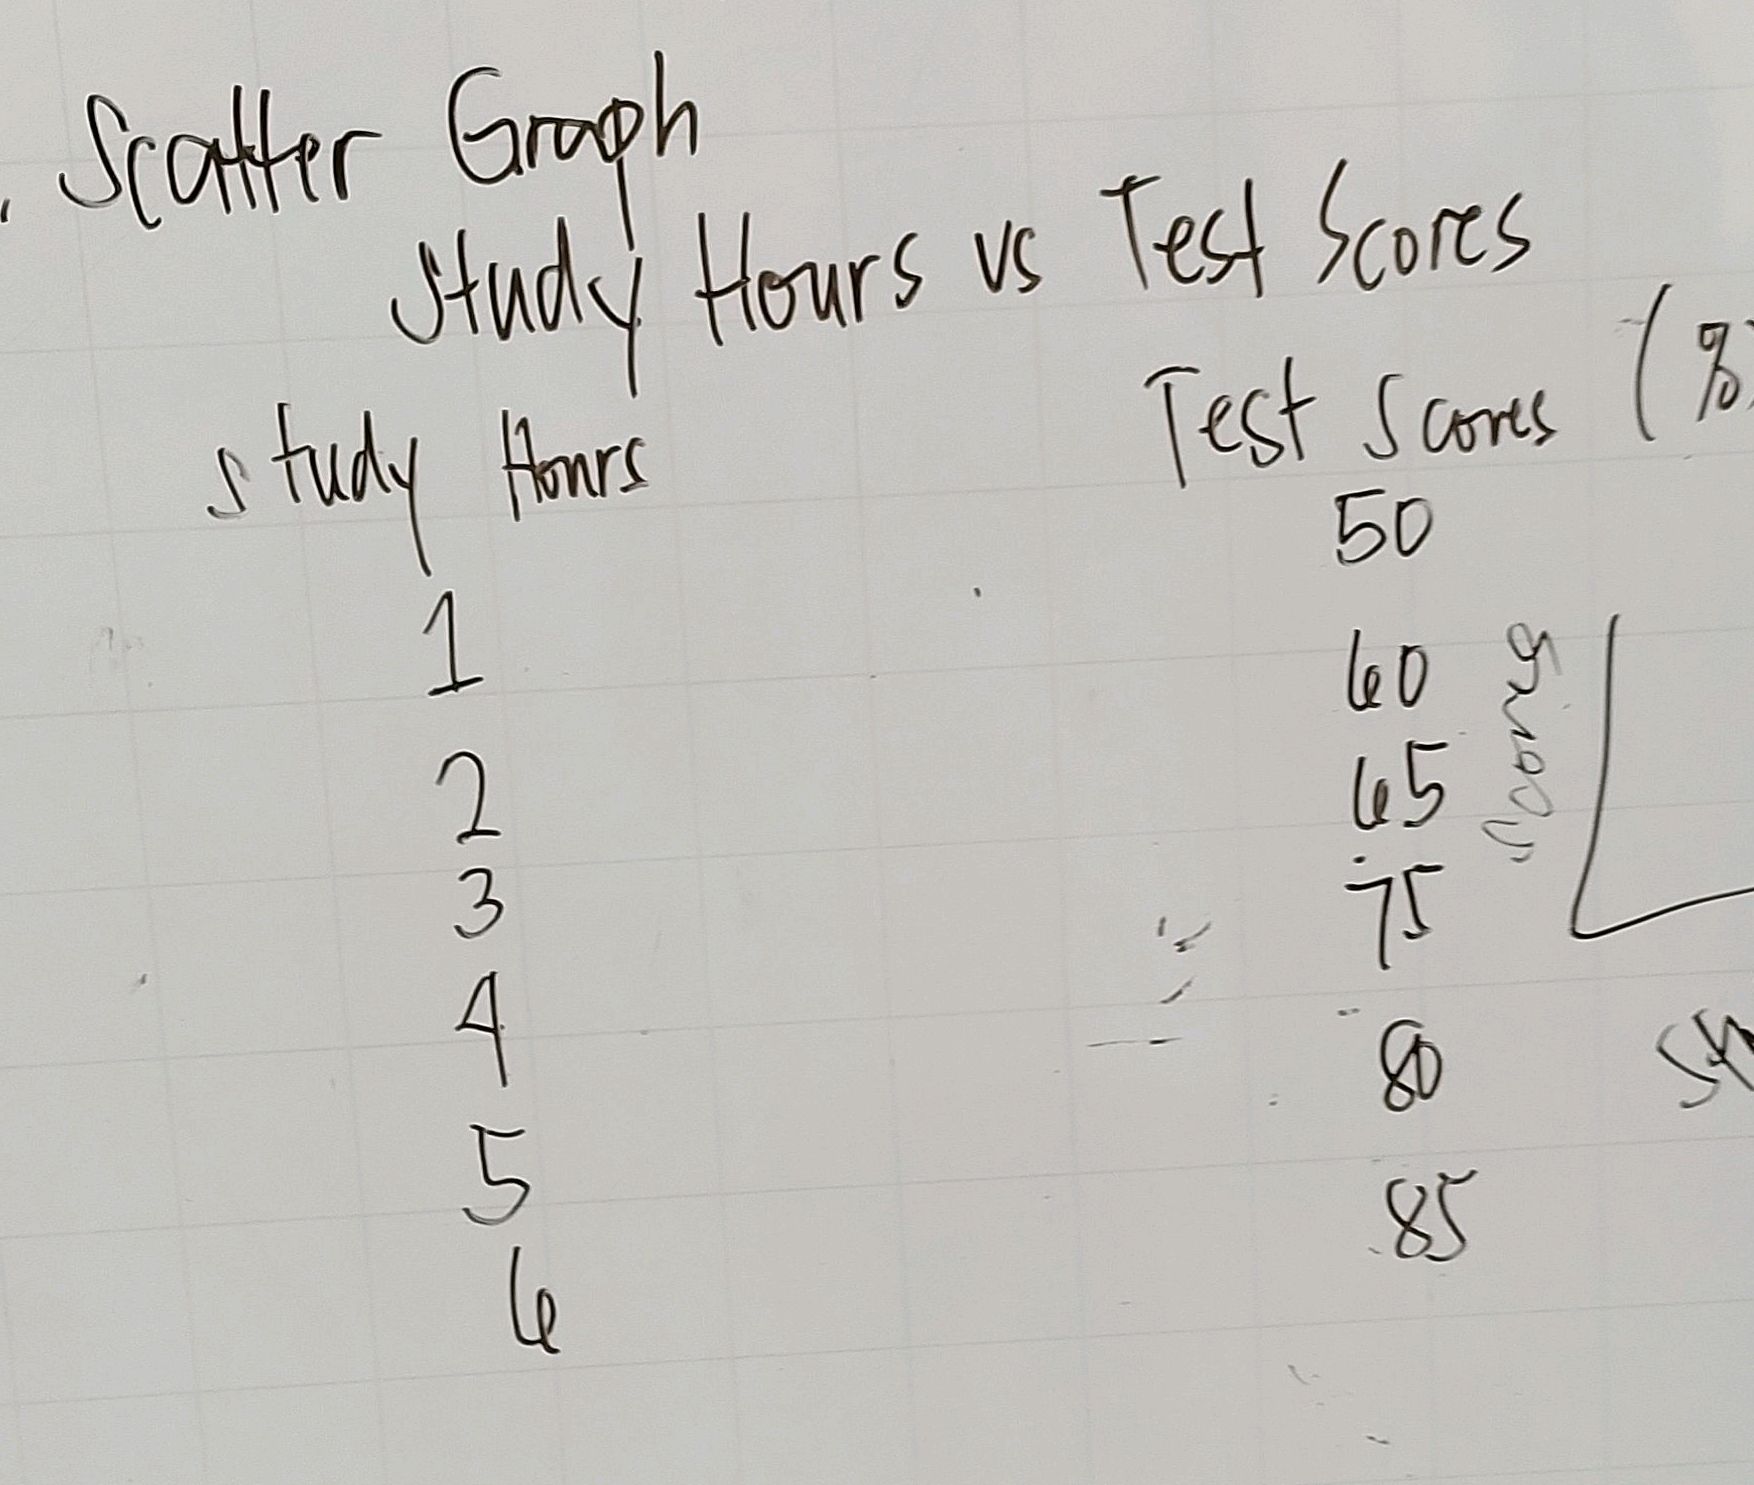 Scatter Graph
Study Hours vs Test Scores
Study Hours Test Scores (%)
1 50
2 60
3 65
4 75
5 80
6 85